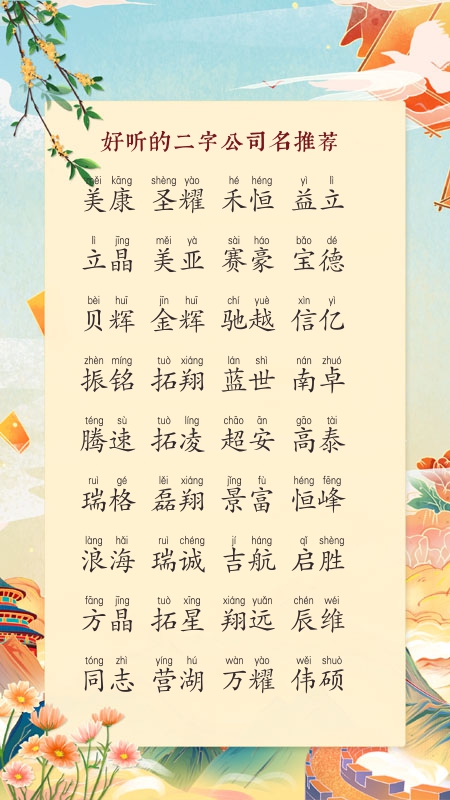 好听的二字公司名推荐
měi kāng shèng yào hé héng yì lì
美康 圣耀 禾恒 益立
lì jīng měi yà sài háo bǎo dé
立晶 美亚 赛豪 宝德
bèi huī jīn huī chí yuè xìn yì
贝辉 金辉 驰越 信亿
zhèn míng tuò xiáng lán shì nán zhuó
振铭 拓翔 蓝世 南卓
téng sù tuò líng chāo ān gāo tài
腾速 拓凌 超安 高泰
ruì gé lěi xiáng jǐng fù héng fēng
瑞格 磊翔 景富 恒峰
làng hǎi ruì chéng jí háng qǐ shèng
浪海 瑞诚 吉航 启胜
fāng jīng tuò xīng xiáng yuǎn chén wéi
方晶 拓星 翔远 辰维
tóng zhì yíng hú wàn yào wěi shuò
同志 营湖 万耀 伟硕